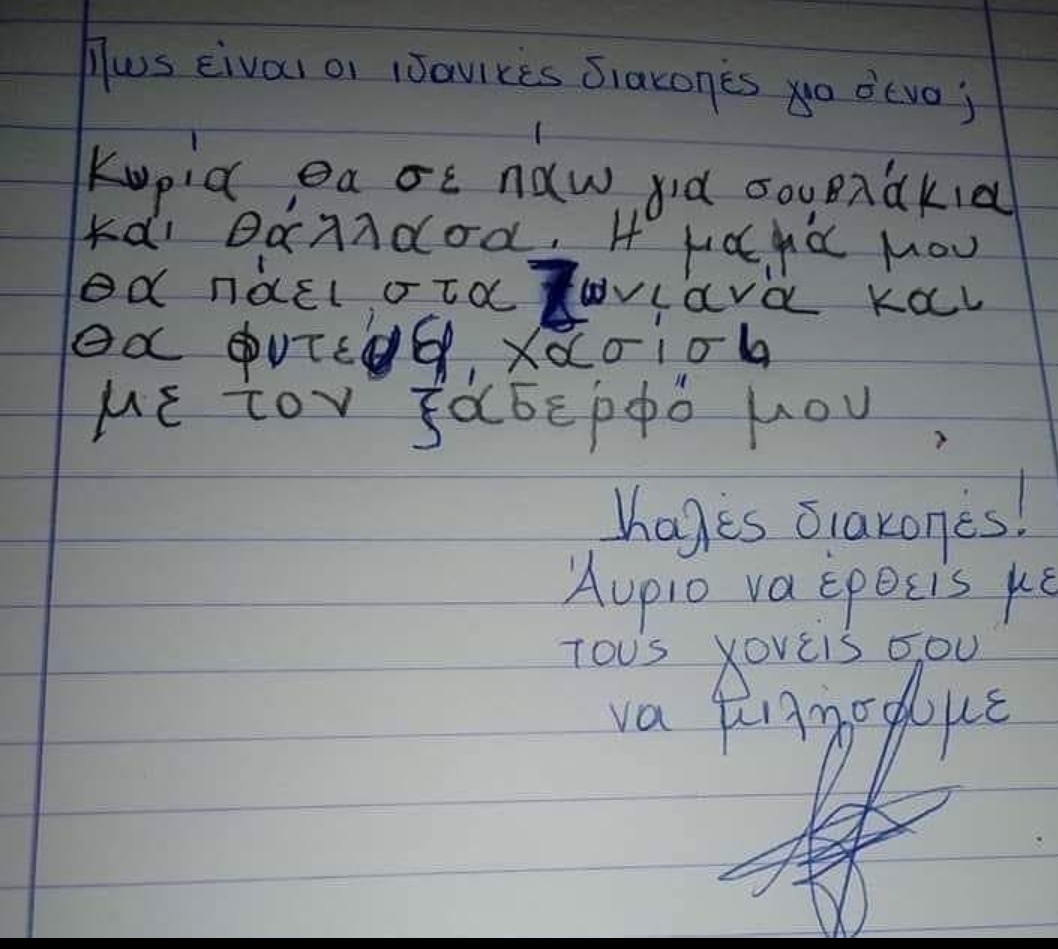 Πως είναι οι ιδανικές διακοπές για σένα;
Κωρία θα σε πάω για σουβλάκια
και θάλλασα. Η μαμά μου
θα πάει στα Ζωνιανά και
θα φυτέψει χασίσι
με τον ξάδερφό μου
Καλές διακοπές!
Άυριο να έρθεις με
τους γονείς σου
να μιλήσουμε